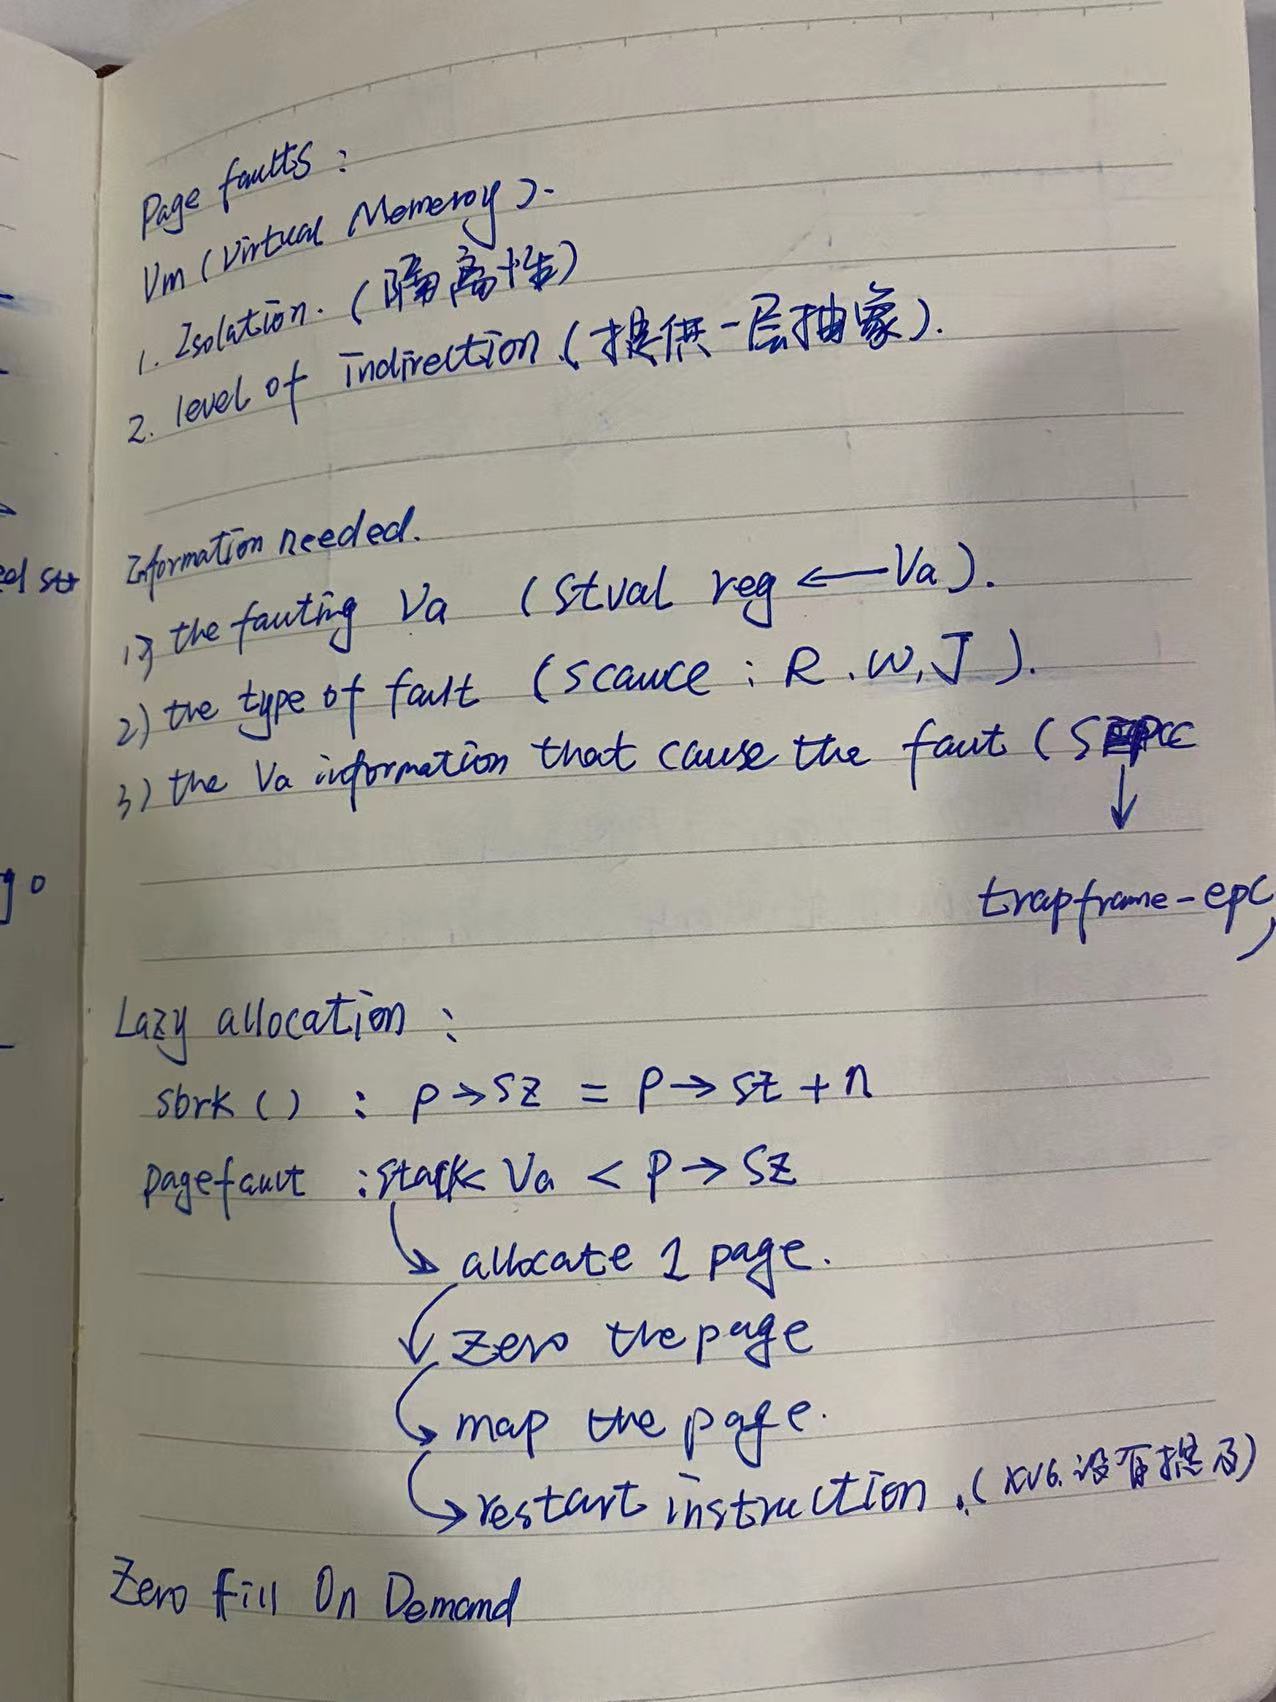 Page faults :
Vm (Virtual Memeroy).
1. Isolation. (隔离性)
2. level of indirection (提供一层抽象).
Information needed.
1) the fauting Va (Stval reg ← Va).
2) the type of fault (scauce : R. W, J).
3) the Va information that cause the faut (S
trapframe-epc)
Lazy allocation :
sbrk () : p→sz = p→sz + n
pagefault : stack< Va < p→sz
allocate 1 page.
zero the page
map the page.
restart instruction. (XV6.没有提及)
Zero Fill On Demand
ed st
go